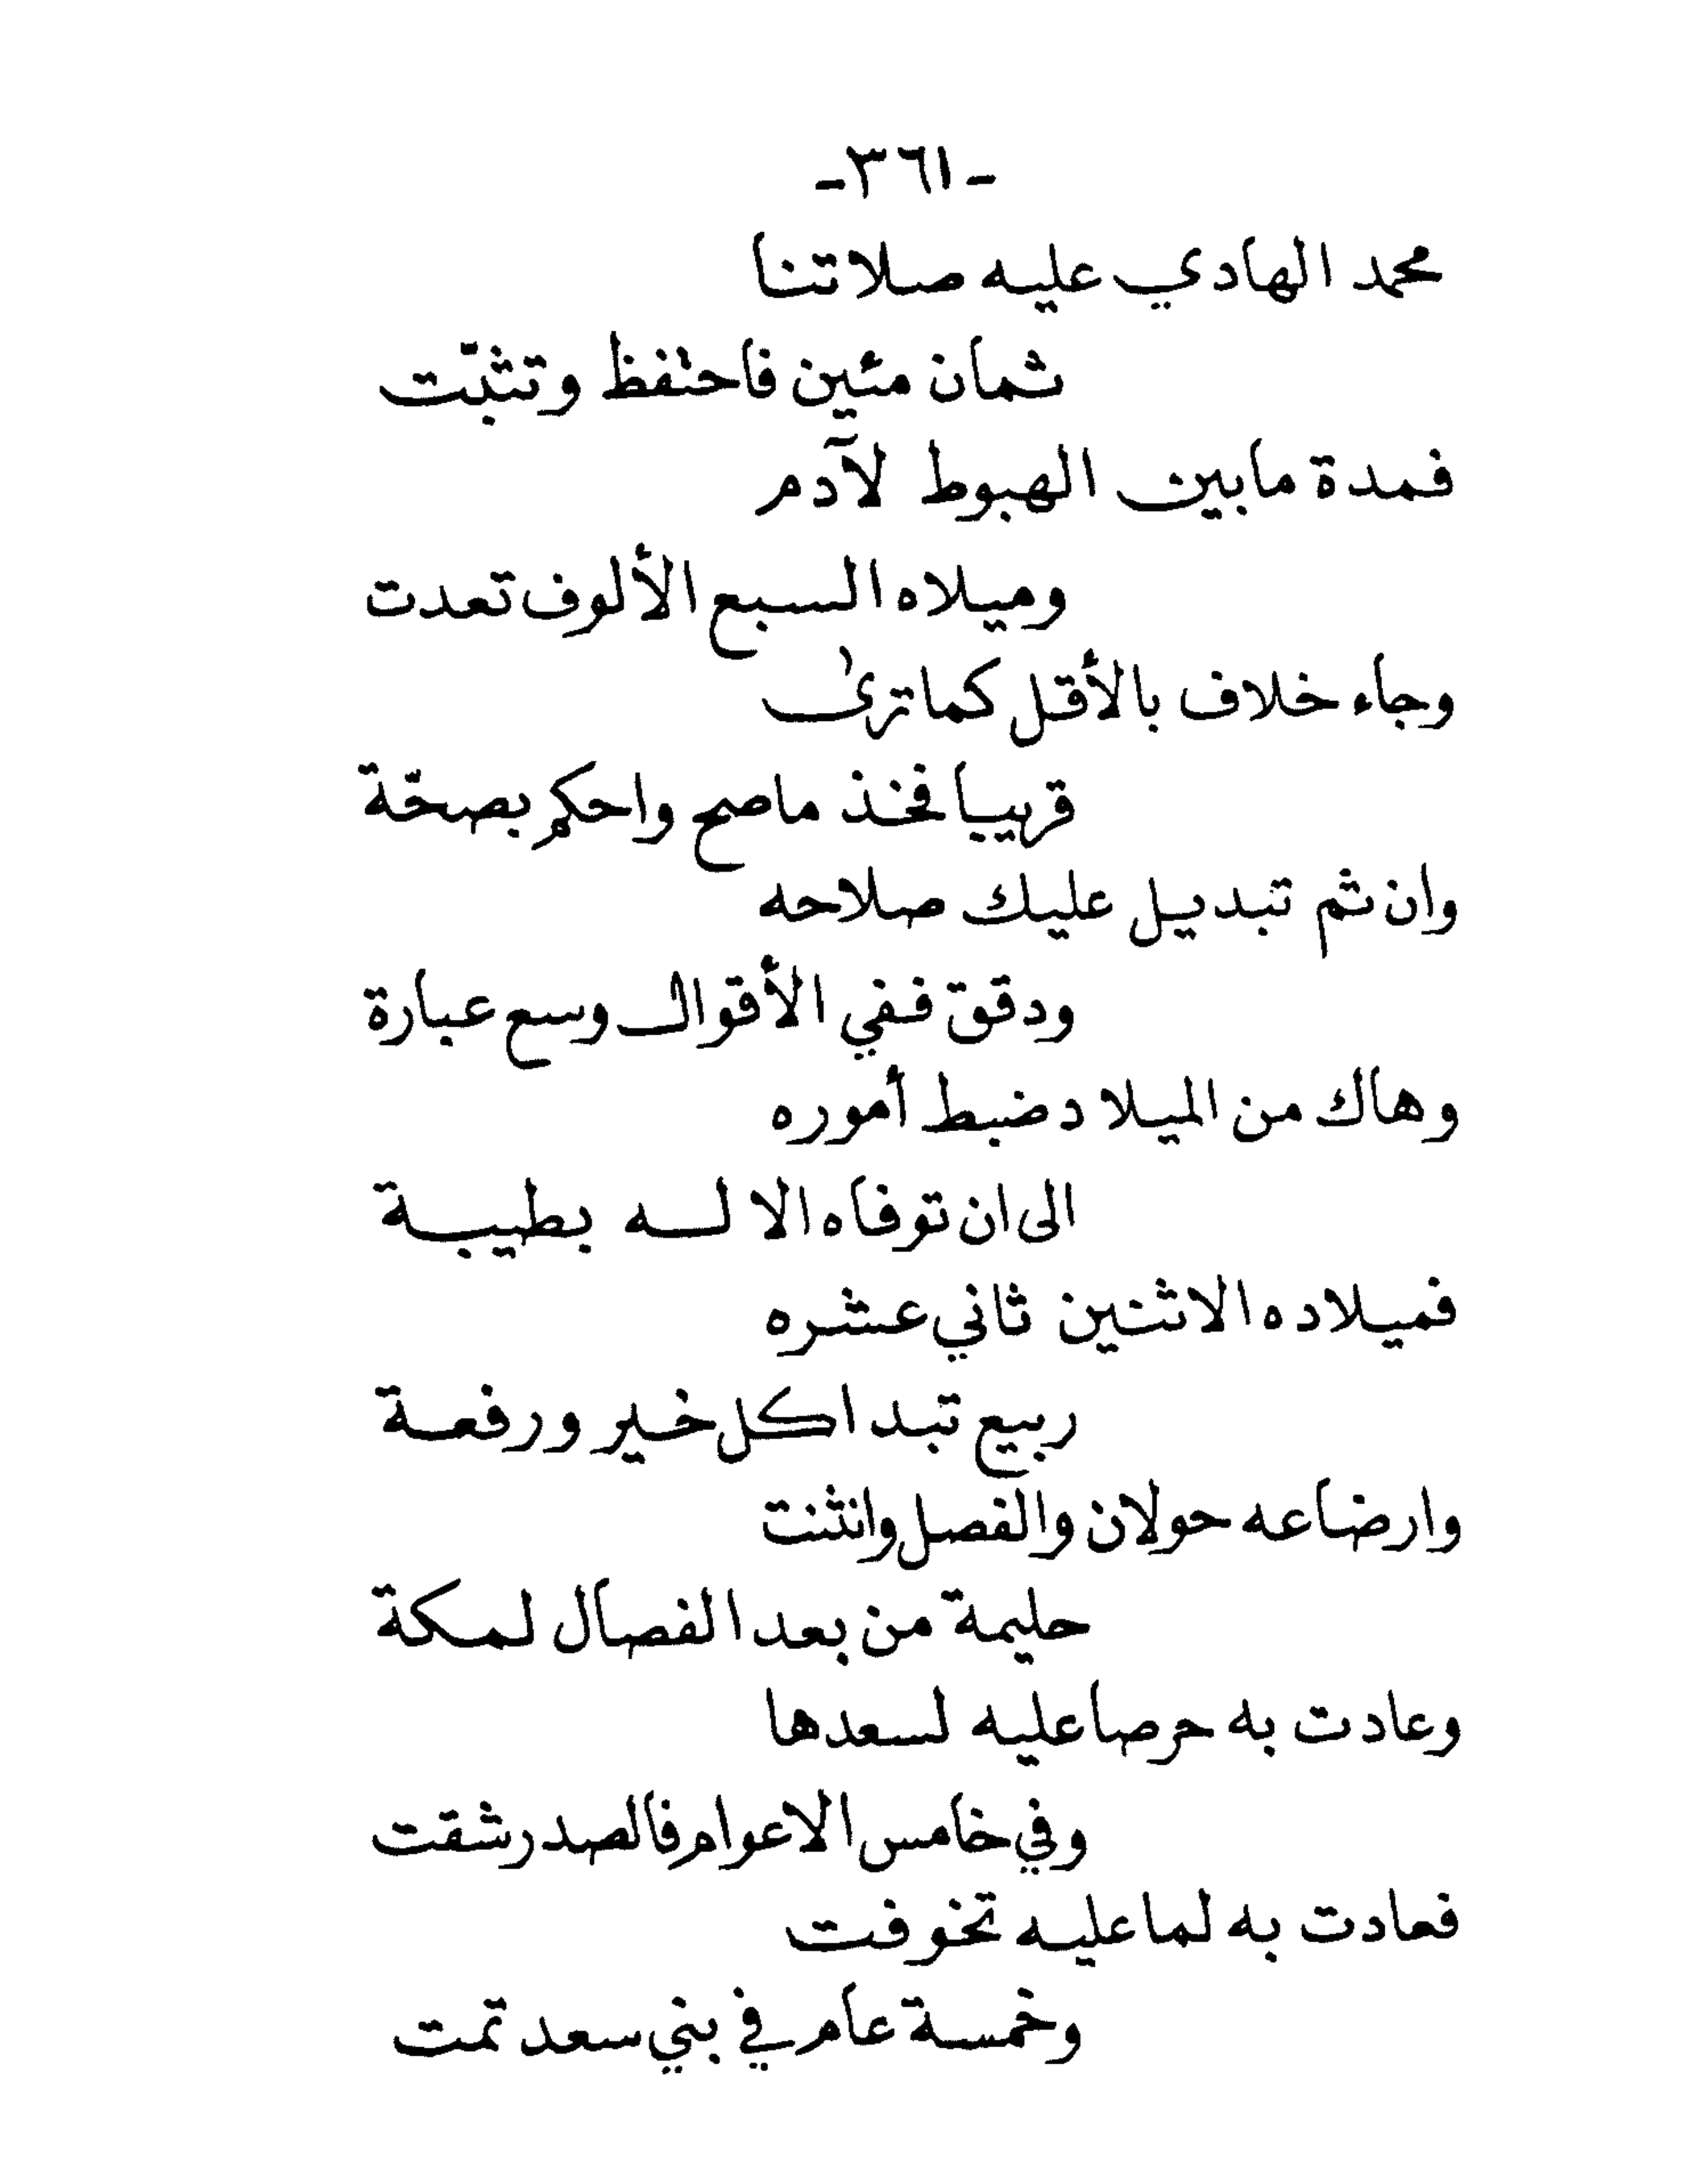 -٣٦١-
محمد الهادي عليه صلاتنا
ثمان مئين فاحتفظ وتثبّت
فمدة مابين الهبوط لآدم
وميلاه السبع الألوف تعدت
وجاء خلاف بالأقل كماترىٰ
قريبا فخذ ماصح واحكم بصحّة
وان ثم تبديل عليك صلاحه
ودقق ففي الأقوال وسع عبارة
وهاك من الميلاد ضبط أموره
الى ان توفاه الاله بطيبة
فميلاده الاثنين ثاني عشره
ربيع تبدا كل خير ورفعة
وارضاعه حولان والفصل وانثنت
حليمة من بعد الفصال لمكة
وعادت به حرصا عليه لسعدها
وفي خامس الاعوام فالصدر شقت
فعادت به لما عليه تخوفت
وخمسة عام في بني سعد تمت